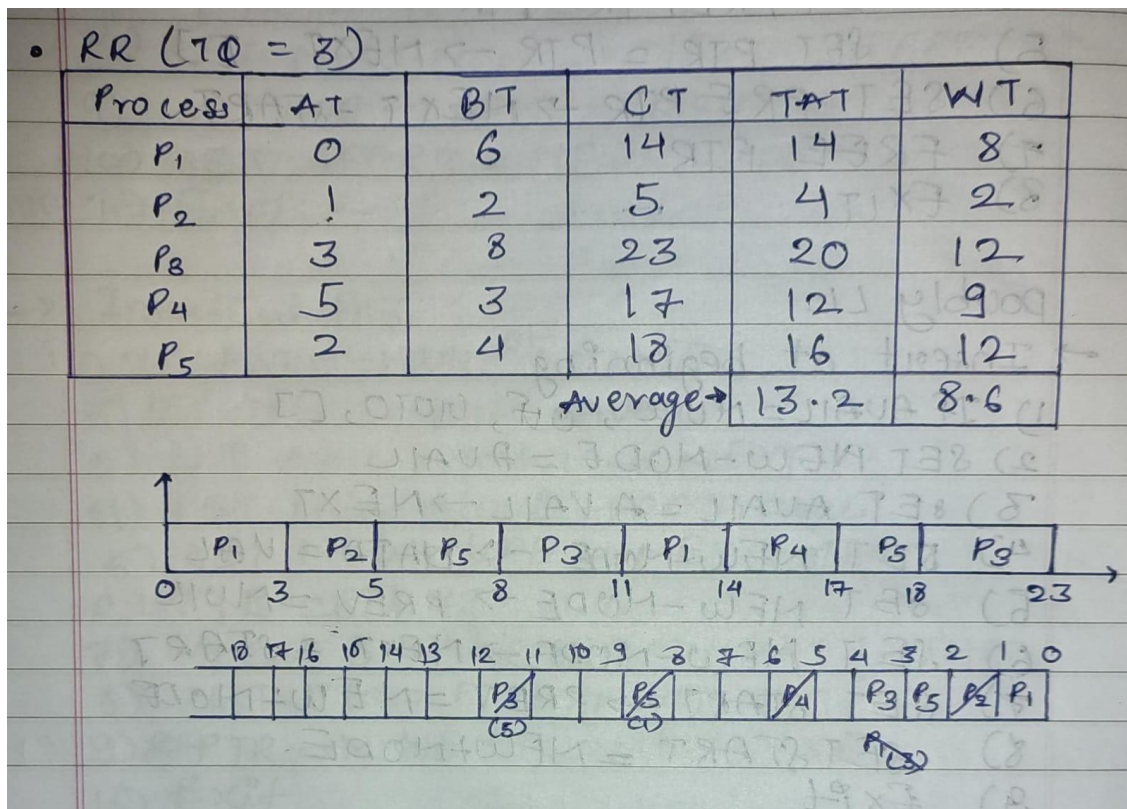 • RR (TQ = 3)
Process AT BT CT TAT WT
P1 0 6 14 14 8
P2 1 2 5 4 2
P3 3 8 23 20 12
P4 5 3 17 12 9
P5 2 4 18 16 12
Average→ 13.2 8.6
P1 P2 P5 P3 P1 P4 P5 P3
0 3 5 8 11 14 17 18 23
18 17 16 15 14 13 12 11 10 9 8 7 6 5 4 3 2 1 0
P3 P5 P4 P3 P5 P2 P1
(5) (1)
P1(3)